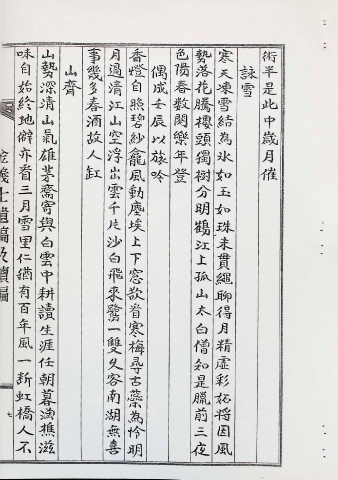 術半是此中歲月催
詠雪
寒天凍雪結為氷如玉如珠未貫繩聊得月精虛彩妬將因風
勢落花騰樓頭獨樹分明鶴江上孤山太白僧知是臘前三夜
色陽春數闋樂年登
偶成壬辰以族吟
香燈自照碧紗龕風動塵埃上下窓欲者寒梅尋古蘂為怜明
月過清江山空浮出雲千片沙白飛來鷺一雙久客南湖無喜
事幾多春酒故人缸
山齋
山勢深清山氣雄茅齋寄與白雲中耕讀生涯任朝暮漁樵滋
味自始終地僻亦看三月雪里仁猶有百年風一斷虹橋人不
幾士遺稿及續編
七